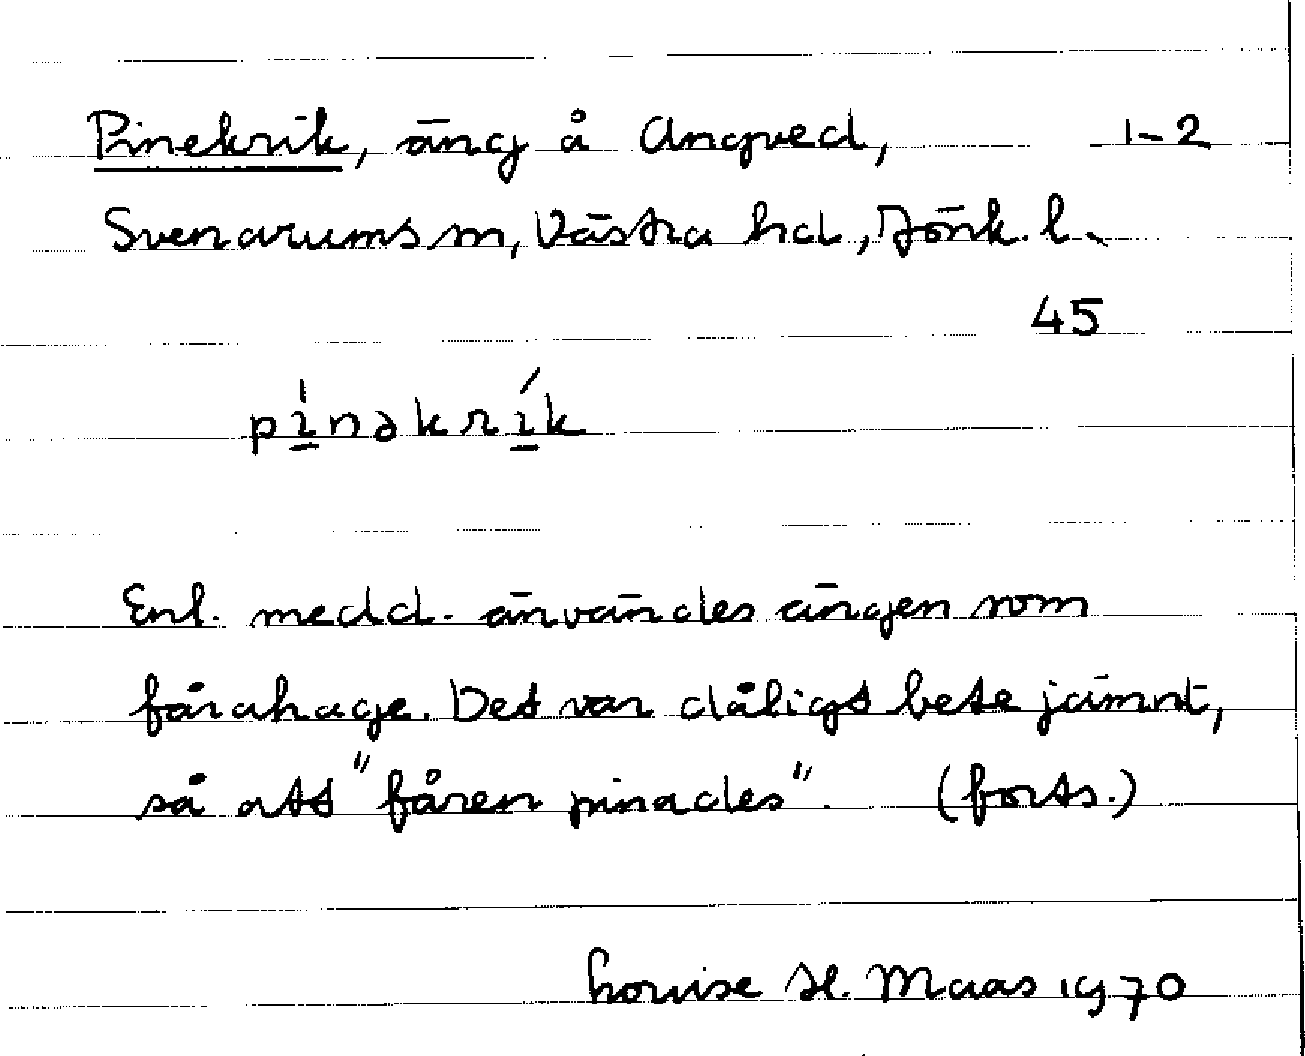 Pinekrik, äng å Angved, 1-2
Svenarums sn, Västra hd, Jönk. l.
45
pi̱nəkri̱k
Enl. medd. användes ängen som
fårahage. Det var dåligt bete jämnt,
så att "fåren pinades". (forts.)
Louise St. Maas 1970